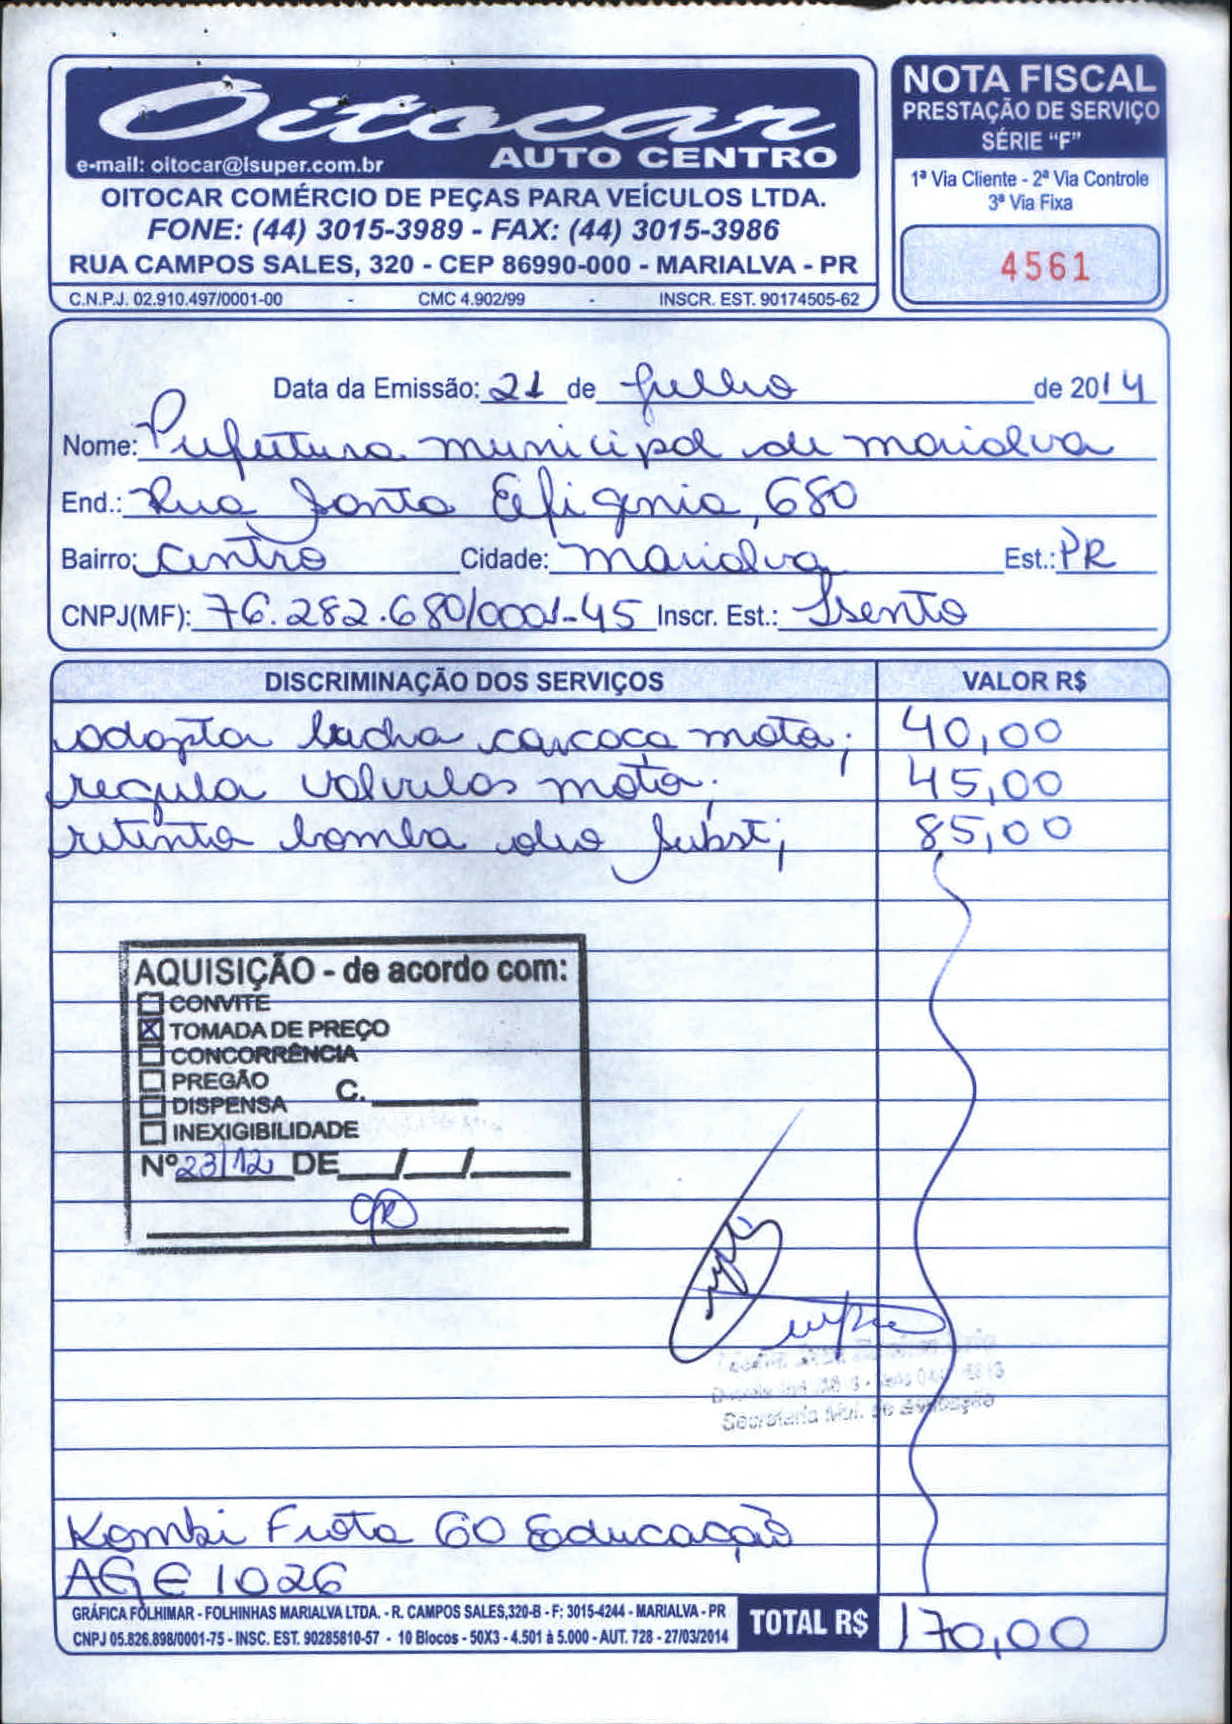 Oitocar
AUTO CENTRO
e-mail: oitocar@lsuper.com.br
OITOCAR COMÉRCIO DE PEÇAS PARA VEÍCULOS LTDA.
FONE: (44) 3015-3989 - FAX: (44) 3015-3986
RUA CAMPOS SALES, 320 - CEP 86990-000 - MARIALVA - PR
C.N.P.J. 02.910.497/0001-00 - CMC 4.902/99 - INSCR. EST. 90174505-62
NOTA FISCAL
PRESTAÇÃO DE SERVIÇO
SÉRIE “F”
1ª Via Cliente - 2ª Via Controle
3ª Via Fixa
4561
Data da Emissão: 21 de Julho de 2014
Nome: Prefeitura municipal de marialva
End.: Rua Santa Efigenia, 680
Bairro: Centro Cidade: Marialva Est.: PR
CNPJ(MF): 76.282.680/0001-45 Inscr. Est.: Isento
DISCRIMINAÇÃO DOS SERVIÇOS VALOR R$
adapta carcaça mota; 40,00
regula valvulas mota; 45,00
bomba oleo subst; 85,00
AQUISIÇÃO - de acordo com:
CONVITE
TOMADA DE PREÇO
CONCORRÊNCIA
PREGÃO C.
DISPENSA
INEXIGIBILIDADE
Nº 23/12 DE / /
Secretaria Mun. de Educação
Kombi Frota 60 Educação
AGE 1026
GRÁFICA FOLHIMAR - FOLHINHAS MARIALVA LTDA. - R. CAMPOS SALES,320-B - F: 3015-4244 - MARIALVA - PR
CNPJ 05.826.898/0001-75 - INSC. EST. 90285810-57 - 10 Blocos - 50X3 - 4.501 à 5.000 - AUT. 728 - 27/03/2014
TOTAL R$ 170,00